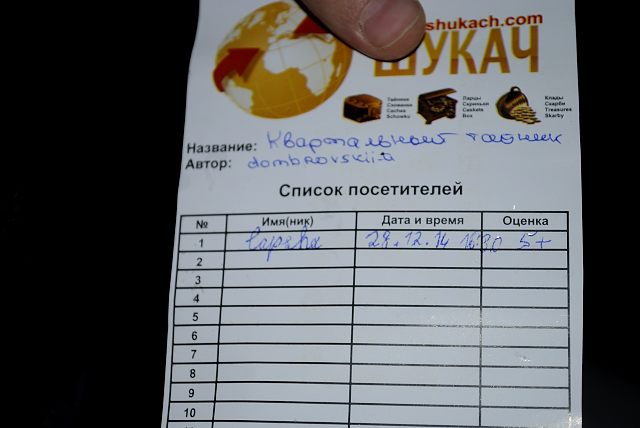 shukach.com
ШУКАЧ
Тайники
Схованки
Caches
Schowku
Ларцы
Скриньки
Caskets
Box
Клады
Скарби
Treasures
Skarby
Название: Квартальный тайник
Автор: dombrovskii-a
Список посетителей
№ Имя(ник) Дата и время Оценка
1 lapsha 29.12.14 16:30 5+
2
3
4
5
6
7
8
9
10